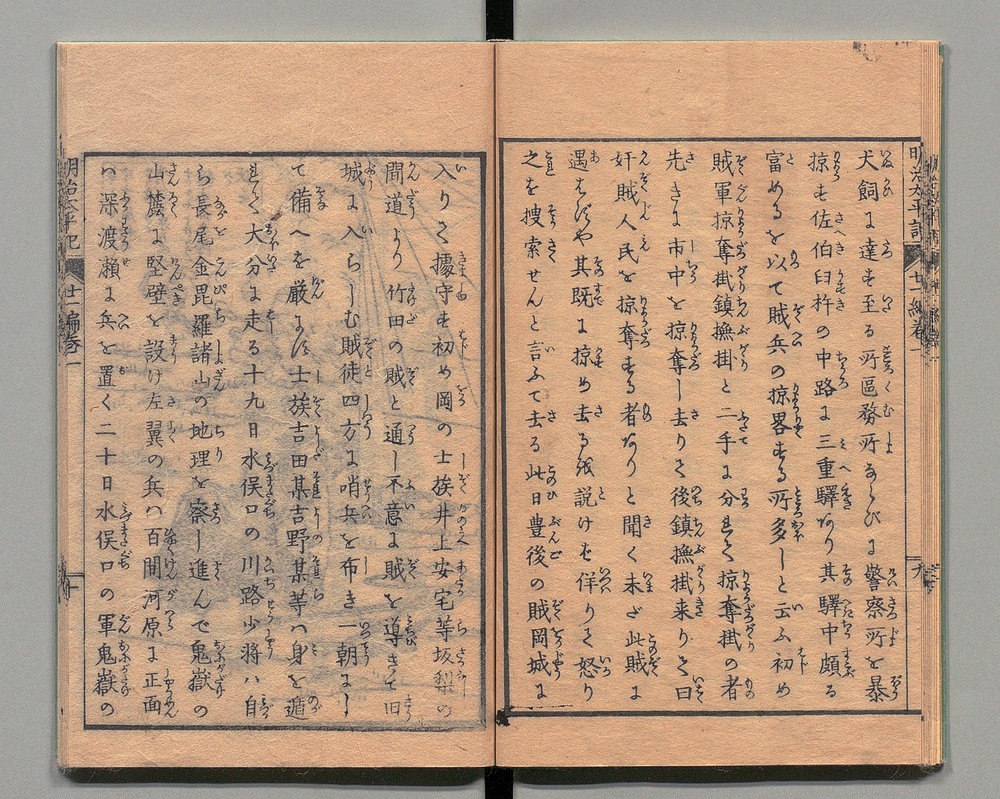 明治太平記 廿一編巻一 九
犬飼に達も至る所區務所ならびに警察所を暴
掠も佐伯臼杵の中路に三重驛あり其驛中頗る
富めるを以て賊兵の掠畧する所多しと云ふ初め
賊軍掠奪掛鎮撫掛と二手に分れて掠奪掛の者
先きに市中を掠奪し去りて後鎮撫掛来りて曰
奸賊人民を掠奪する者ありと聞く未ざ此賊に
遇はずや其既に掠め去るを説けも佯りて怒り
之を捜索せんと言ふて去る此日豊後の賊岡城に
入りて據守も初め岡の士族井上安宅等坂梨の
間道より竹田の賊と通し不意に賊を導きて旧
城に入らしむ賊徒四方に哨兵を布き一朝にし
て備へを厳にす士族吉田某吉野某等ハ身を遁
れて大分に走る十九日水俣口の川路少将ハ自
ら長尾金毘羅諸山の地理を察し進んで鬼嶽の
山麓に堅壁を設け左翼の兵ハ百間河原に正面
ハ深渡瀬に兵を置く二十日水俣口の軍鬼嶽の
明治太平記 廿一編巻一 十